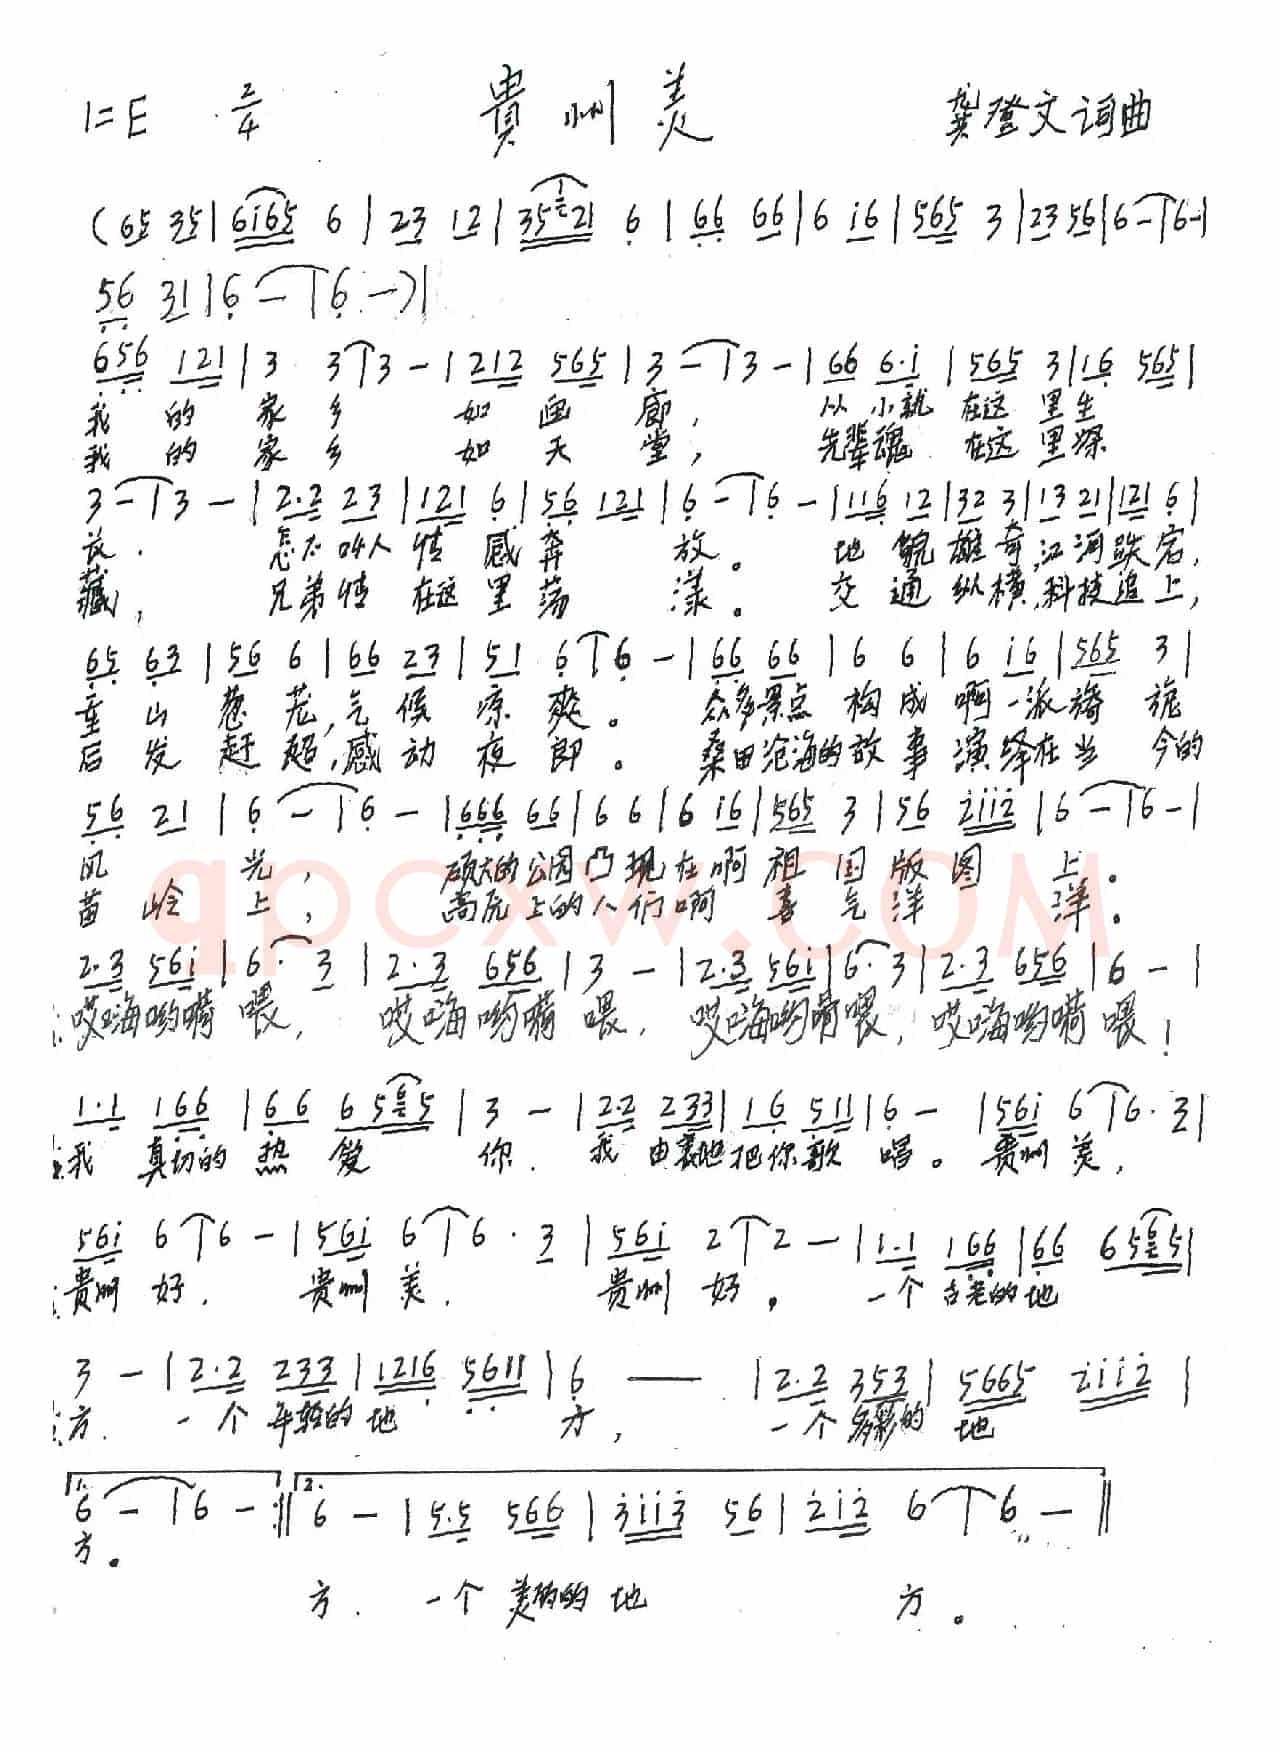 1=E 2/4 貴州美 龚登文词曲
(65 35|6i65 6|23 12|35221 6|66 66|6 i6|565 3|23 56|6-|6-|
56 31|6-|6-)|
656 121|3 3|3-|212 565|3-|3-|66 6·i|565 3|16 565|
我的家乡如画廊,从小就在这里生
我的家乡如天堂,先辈魂在这里深
3-|3-|2·2 23|121 6|56 121|6-|6-|116 12|32 3|13 21|121 6|
长.怎不叫人情感奔放。地貌雄奇,江河跌宕,
藏,兄弟情在这里荡漾。交通纵横,科技追上,
65 63|56 6|66 23|51 6|6-|66 66|6 6|6 i6|565 3|
重山葱茏,气候凉爽。众多景点构成啊一派旖旎
后发赶超,感动夜郎。桑田沧海的故事演绎在当今的
56 21|6-|6-|666 66|6 6|6 i6|565 3|56 2ii2|6-|6-|
风光,硕大的公园凸现在啊祖国版图上。
苗岭上,高原上的人们啊喜气洋洋。
qpcxw.COM
2·3 56i|6· 3|2·3 656|3-|2·3 56i|6·3|2·3 656|6-|
哎嗨哟嗬喂,哎嗨哟嗬喂,哎嗨哟嗬喂,哎嗨哟嗬喂!
1·1 166|66 6565|3-|2·2 233|16 511|6-|56i 6|6·3|
我真切的热爱你.我由衷地把你歌唱。贵州美,
56i 6|6-|56i 6|6·3|56i 2|2-|1·1 166|66 6565|
贵州好.贵州美.贵州好。一个古老的地
3-|2·2 233|1216 5611|6——|2·2 353|5665 2ii2|
方.一个年轻的地方,一个多彩的地
1. 6-|6-:‖2. 6-|5·5 566|3ii3 56|2i2 6|6-‖
方。
方.一个美丽的地方。